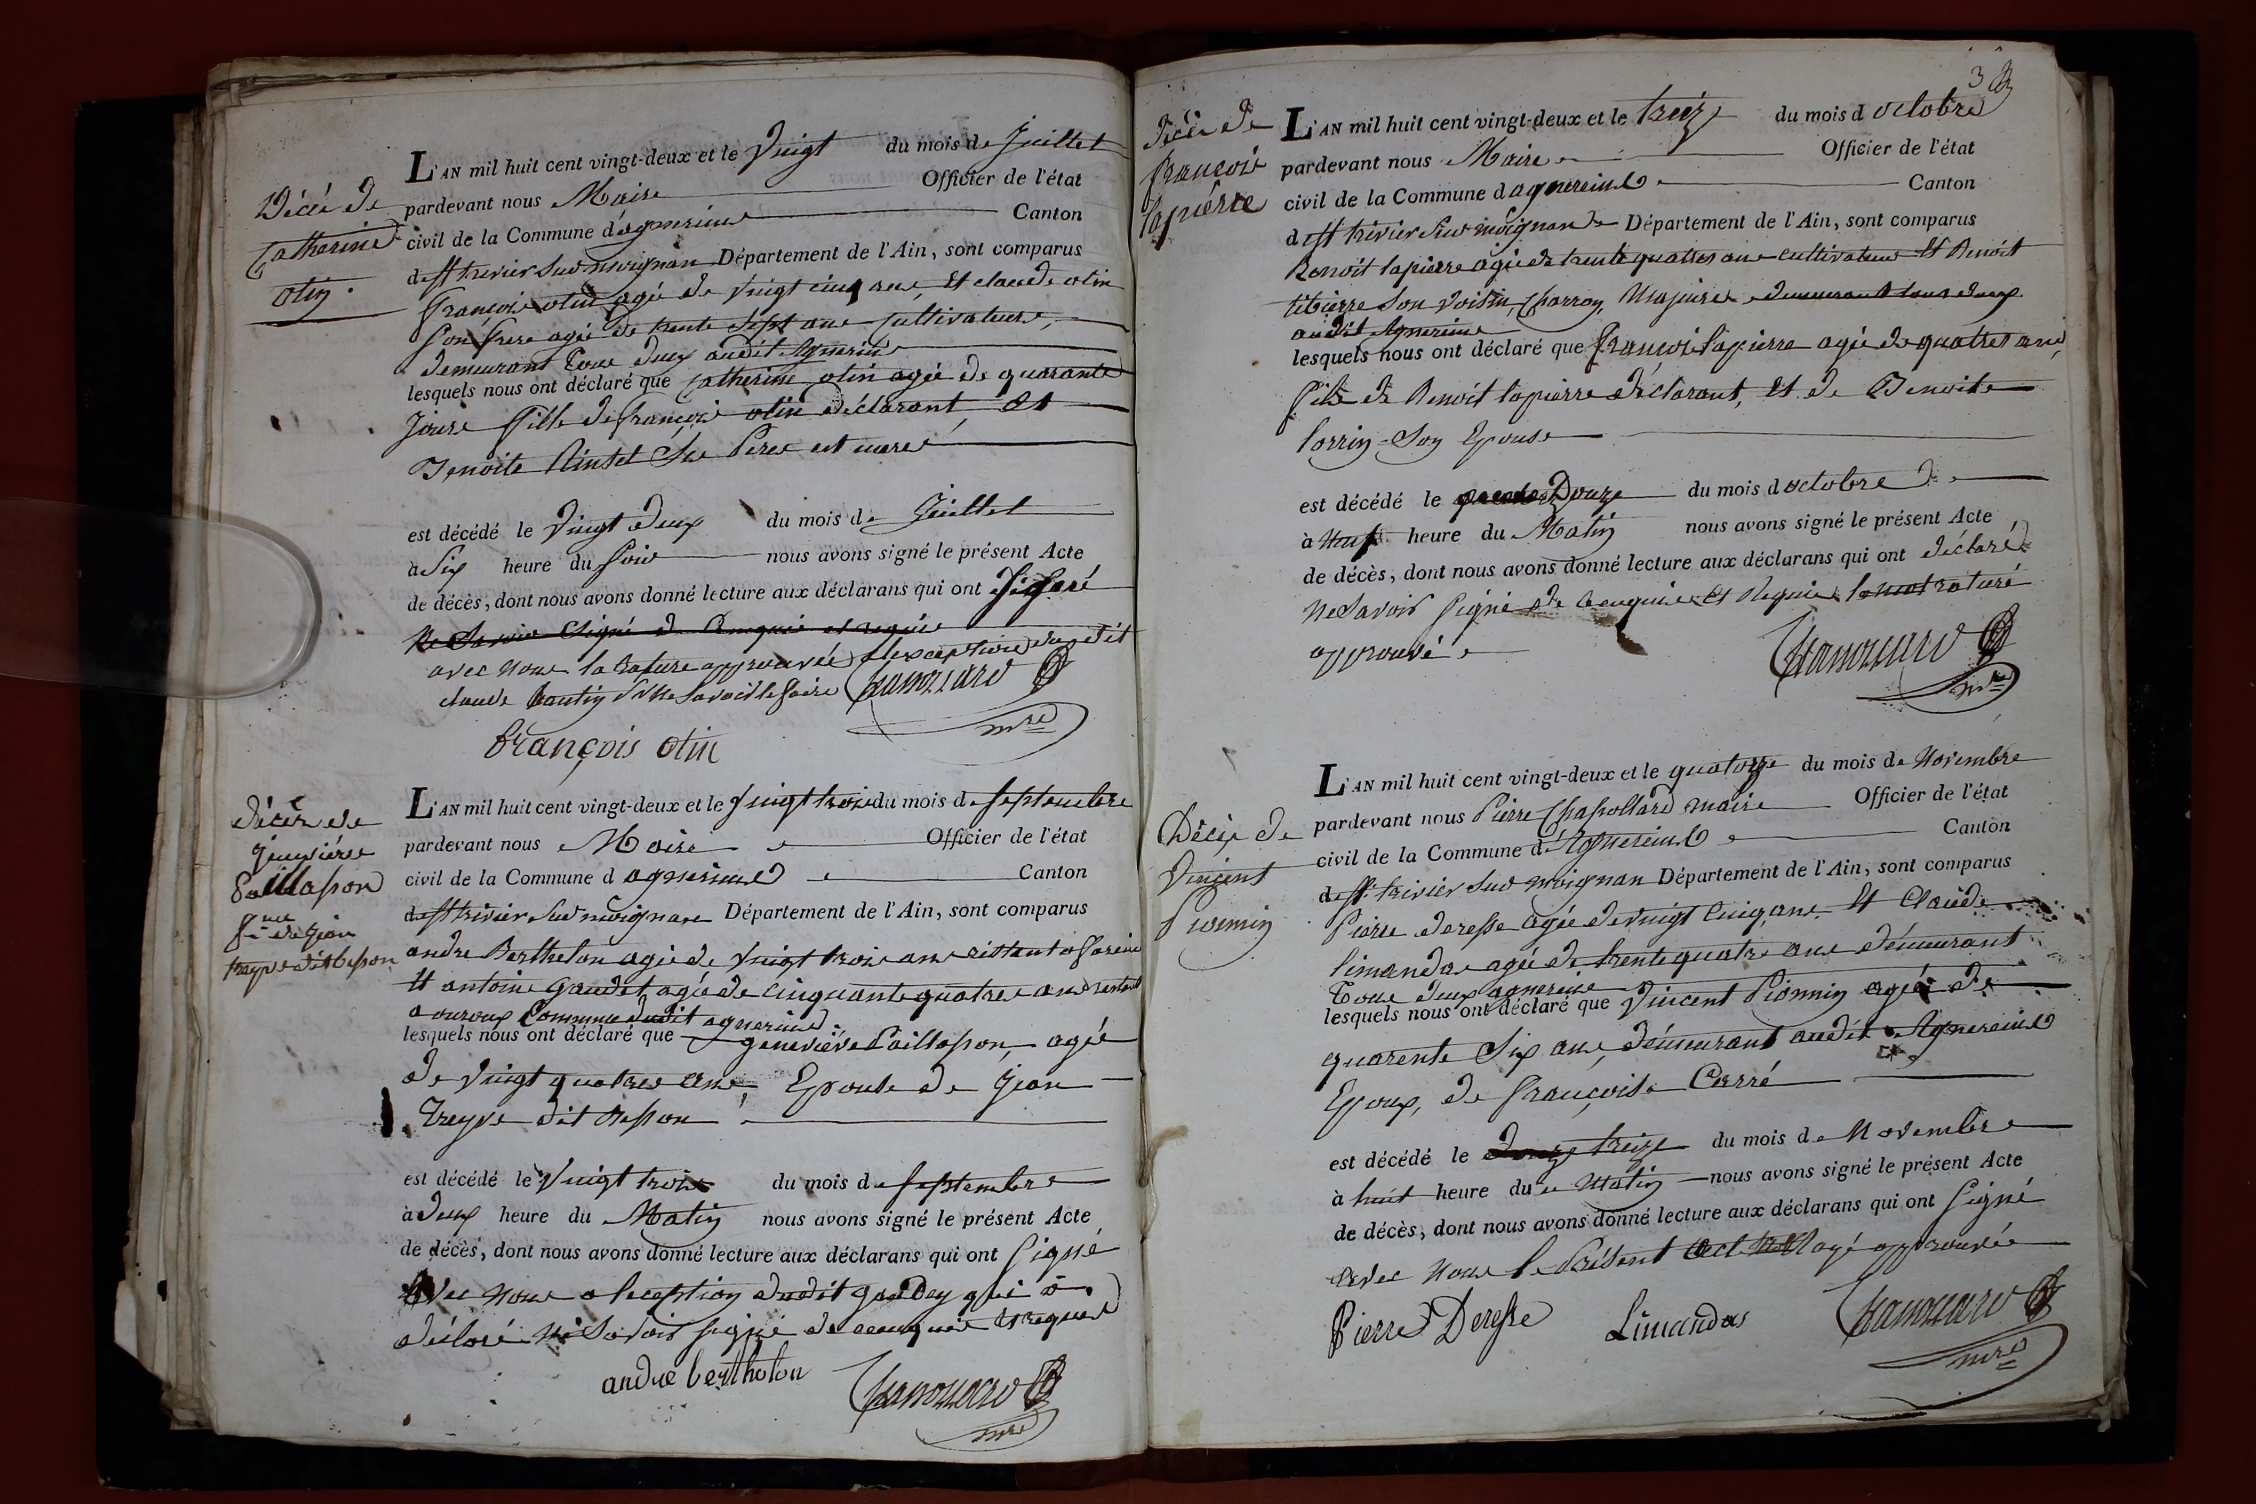 Décé de
Catherine
otin.
L'AN mil huit cent vingt-deux et le Vingt du mois de Juillet
pardevant nous Maire Officier de l'état
civil de la Commune d'agnereins Canton
de St trivier sur moignan Département de l'Ain, sont comparus
François otin agé de Vingt cinq ans, Et claude otin
son frere agé de trente sept ans Cultivateurs,
demeurant Tous deux audit Agnereins
lesquels nous ont déclaré que Catherine otin agée de quarante
Jours fille de françois otin déclarant, Et
Benoite ses Peres et mere
est décédé le Vingt deux du mois de Juillet
à Six heure du soir nous avons signé le présent Acte
de décès, dont nous avons donné lecture aux déclarans qui ont
Ne Savoir Signé de Cenquis et requis
avec Nous la Rature approuvée dudit
claude le faire
mre
françois otin
décès de
Genviéve
Paillasson
fme de Jean
treyve dit besson
L'AN mil huit cent vingt-deux et le Vingt trois du mois de septembre
pardevant nous Maire Officier de l'état
civil de la Commune d agnereins Canton
de St trivier sur moignan Département de l'Ain, sont comparus
andre Berthelon agé de Vingt trois ans a fareins
Et antoine Gaudet agé de Cinquante quatre ans
a ouroux Commune dudit agnereins
lesquels nous ont déclaré que geneviéve Paillasson, agée
de Vingt quatre ans, Epouse de Jean
Treyve dit Besson
est décédé le Vingt trois du mois de septembre
à Deux heure du Matin nous avons signé le présent Acte
de décès, dont nous avons donné lecture aux déclarans qui ont Signé
Avec Nous a lexception dudit qui a
déclaré Ne Savoir signé de ceenquis et requis
andré bertholon
mre
3
Décé de
François
lapierre
L'AN mil huit cent vingt-deux et le treize du mois d octobre
pardevant nous Maire Officier de l'état
civil de la Commune d agnereins Canton
de St trivier sur moignan Département de l'Ain, sont comparus
Benoit lapierre agé de trente quatre ans cultivateur Et Benoit
son Voisin, Charron, Majeurs demeurant tous deux
audit Agnereins
lesquels nous ont déclaré que François lapierre agé de quatre ans
fils de Benoit lapierre déclarant, Et de Benoite
Son Epouse
est décédé le Douze du mois d octobre
à Neuf heure du Matin nous avons signé le présent Acte
de décès, dont nous avons donné lecture aux déclarans qui ont déclaré
Ne Savoir Signé de Cenquis et Requis le mot raturé
approuvé
mre
Décé de
Vincent
Pionnin
L'AN mil huit cent vingt-deux et le quatorze du mois de Novembre
pardevant nous Pierre Chapollard maire Officier de l'état
civil de la Commune d'Agnereins Canton
de St trivier sur moignan Département de l'Ain, sont comparus
Pierre deresse agé de vingt Cinq ans Et Claude
limandas agé de trente quatre ans demeurant
Tous deux agnereins
lesquels nous ont déclaré que Vincent Pionnin agé de
quarente Six ans, démeurant audit Agnereins
Epoux, de Françoise Carré
est décédé le Douze treize du mois de Novembre
à huit heure du Matin nous avons signé le présent Acte
de décès, dont nous avons donné lecture aux déclarans qui ont Signé
avec Nous le Présent acte Rayé approuvée
Pierre Deresse Limandas
mre